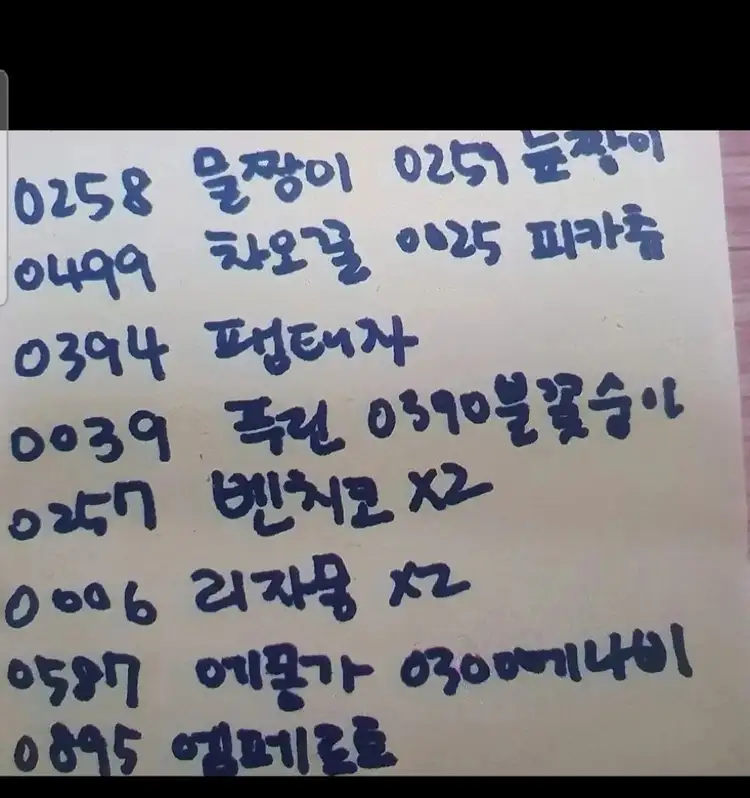 0258 물짱이 0259 늪짱이
0499 차오꿀 0025 피카츄
0394 팽태자
0039 푸린 0390불꽃숭이
0257 벤치코 x2
0006 리자몽 x2
0587 에몽가 0300에나비
0895 엠페르트